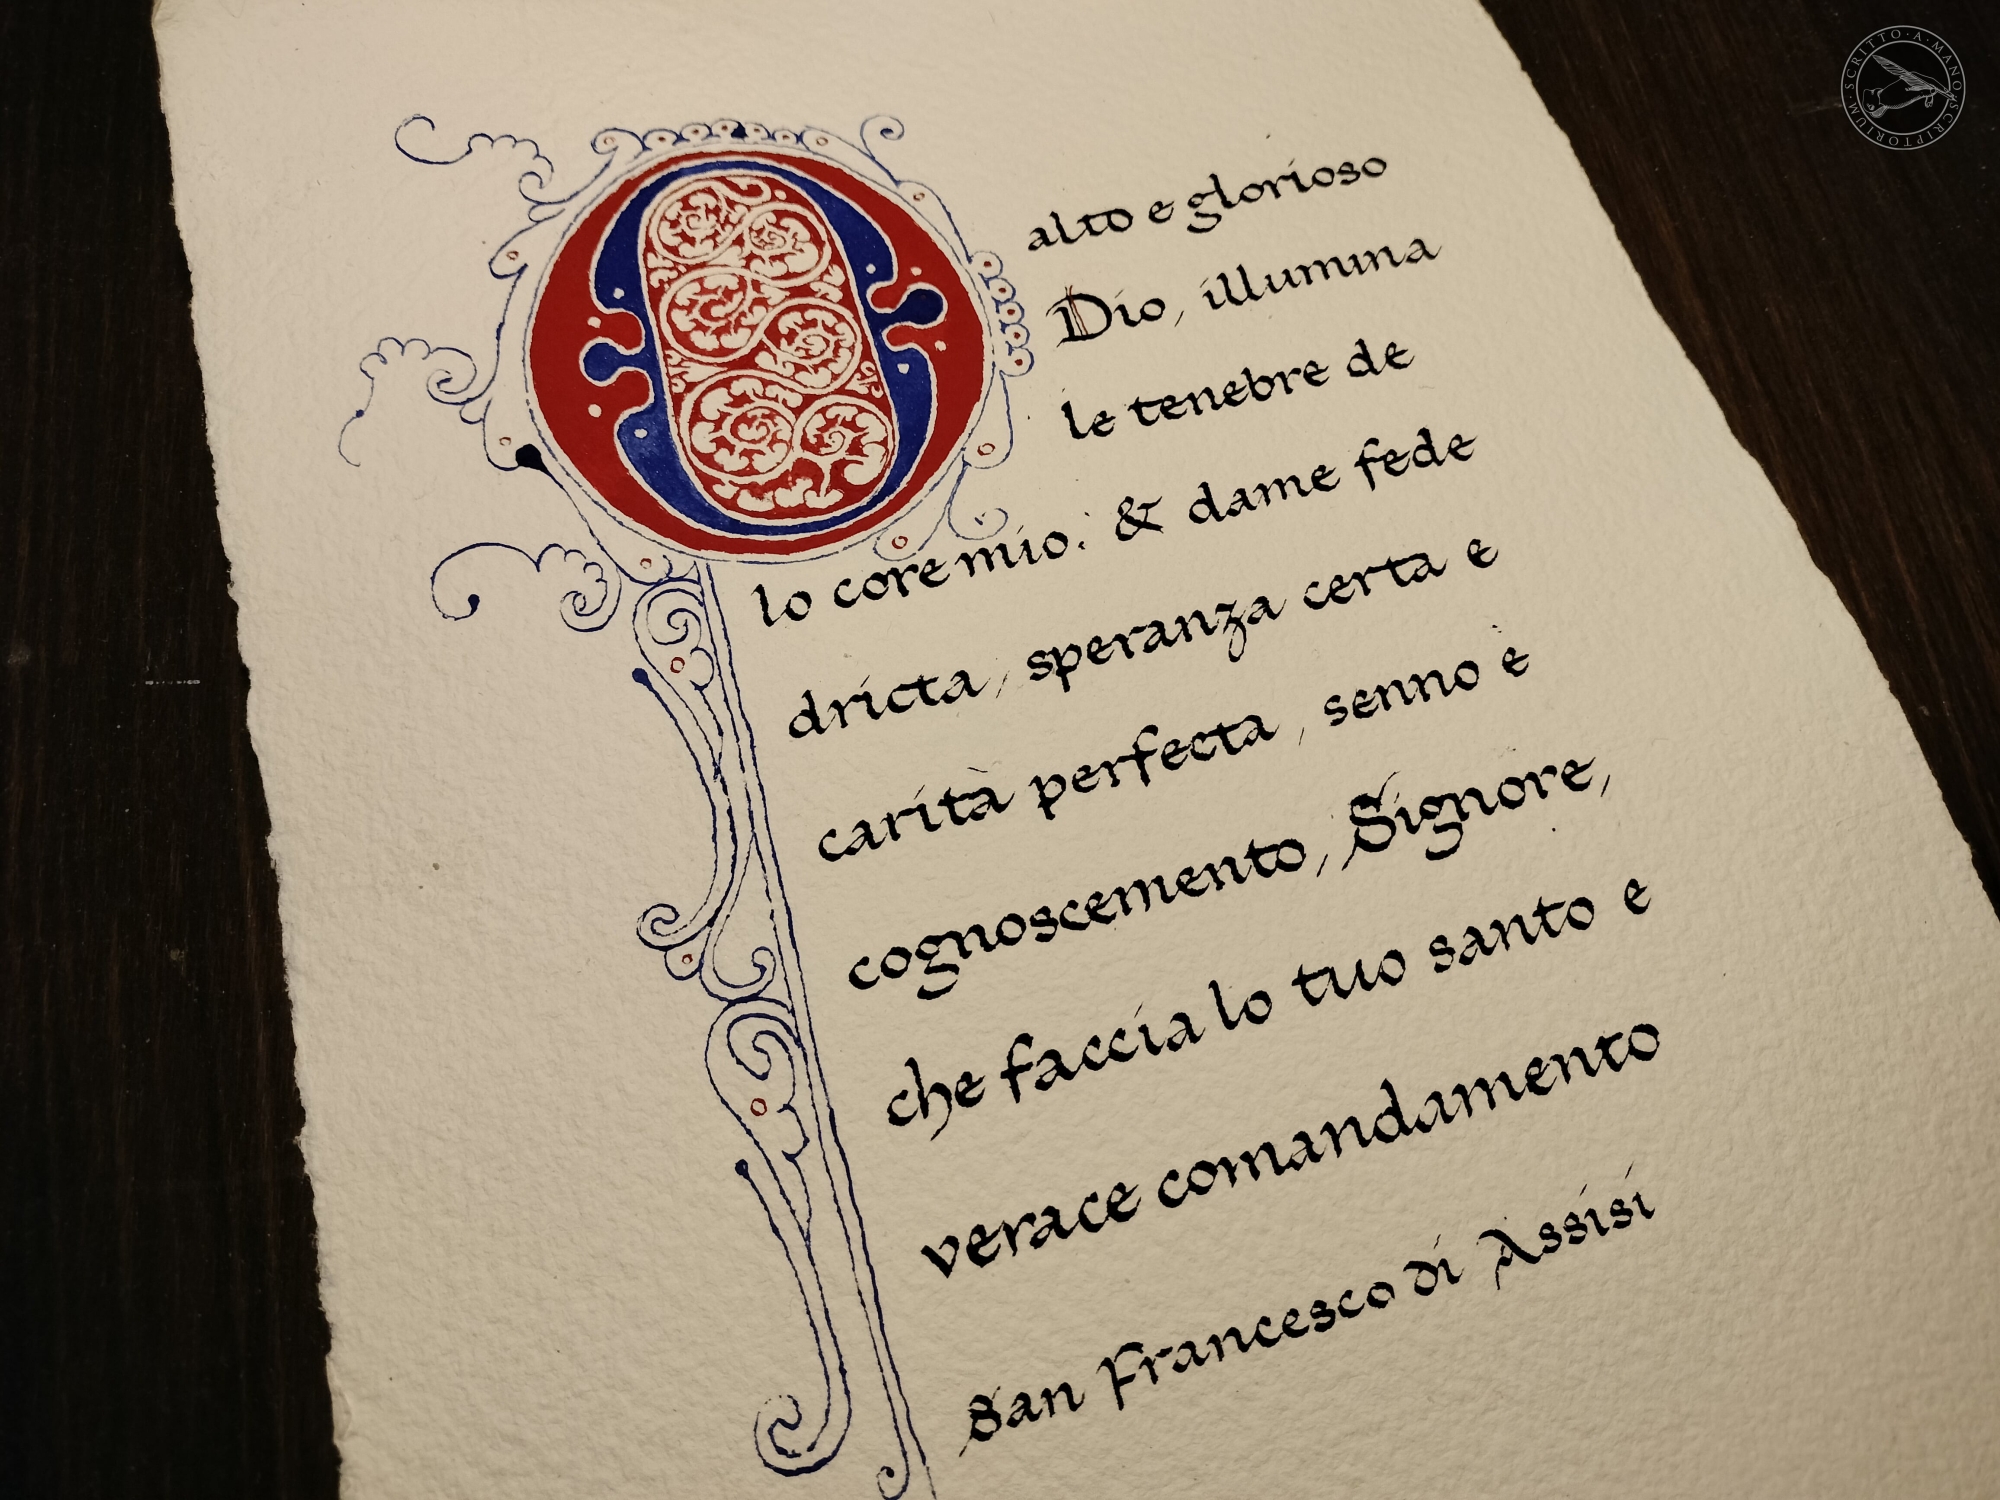 O alto e glorioso
Dio, illumina
le tenebre de
lo core mio. & dame fede
dricta, speranza certa e
carità perfecta, senno e
cognoscemento, Signore,
che faccia lo tuo santo e
verace comandamento
San Francesco di Assisi
SCRITTO·A·MANO·SCRIPTORIUM·